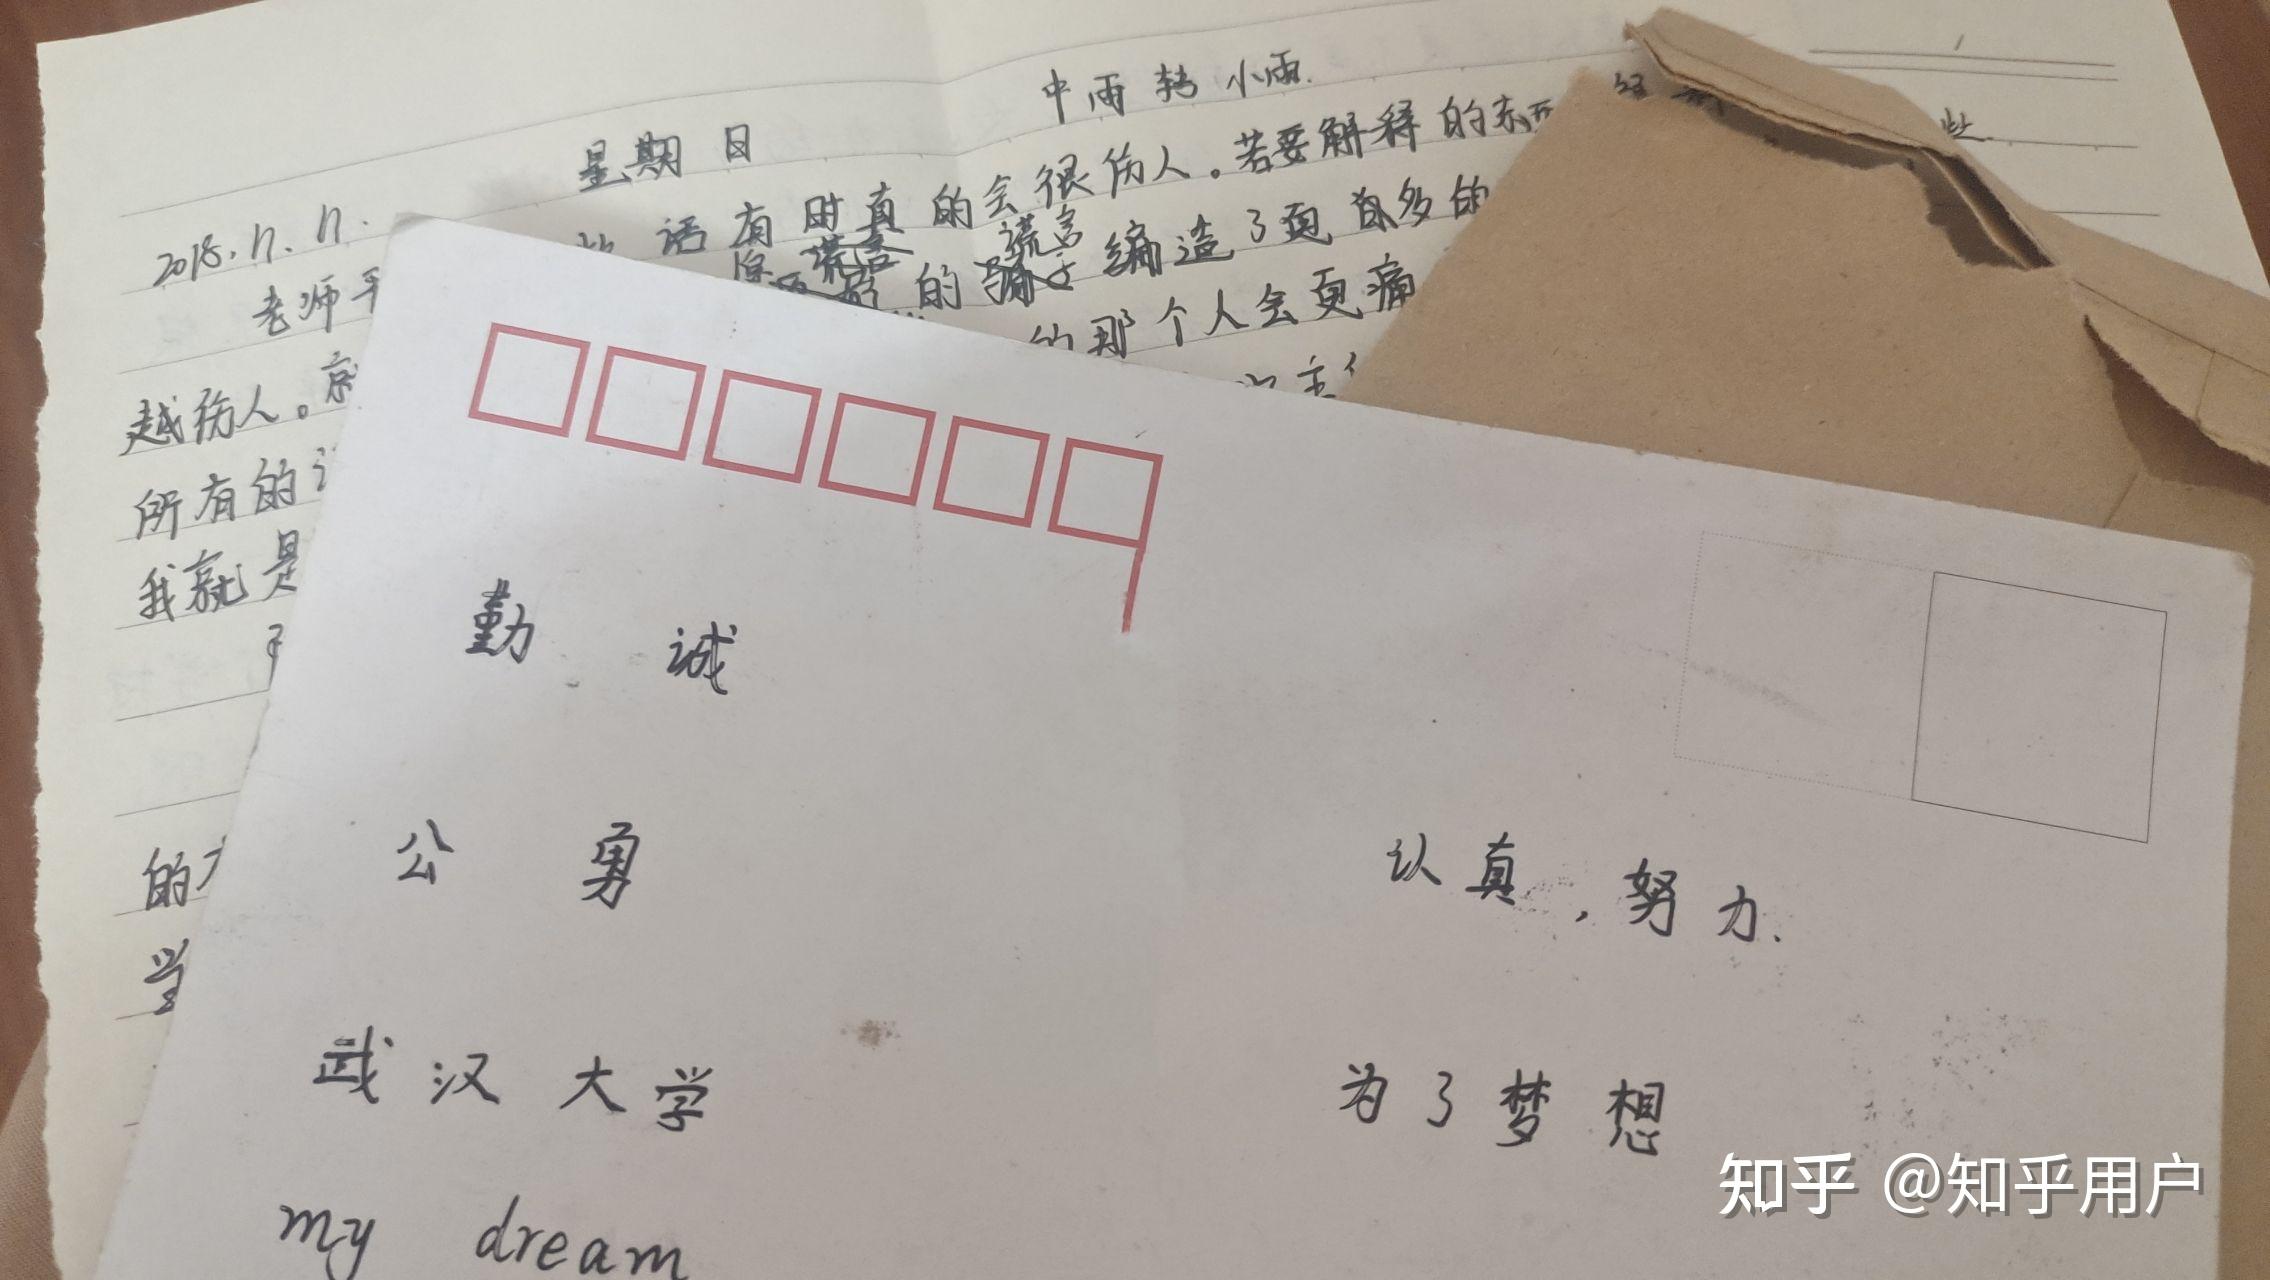 中雨转小雨.
星期日
2018.
老师平
话有时真的会很伤人。若要解释的东西
谎言 谎言
的 编造了更多的
的那个人会更痛
越伤人。就
所有的
我就是
的
学
勤 诚
公 勇
武汉大学
my dream
认真,努力.
为了梦想
知乎 @知乎用户